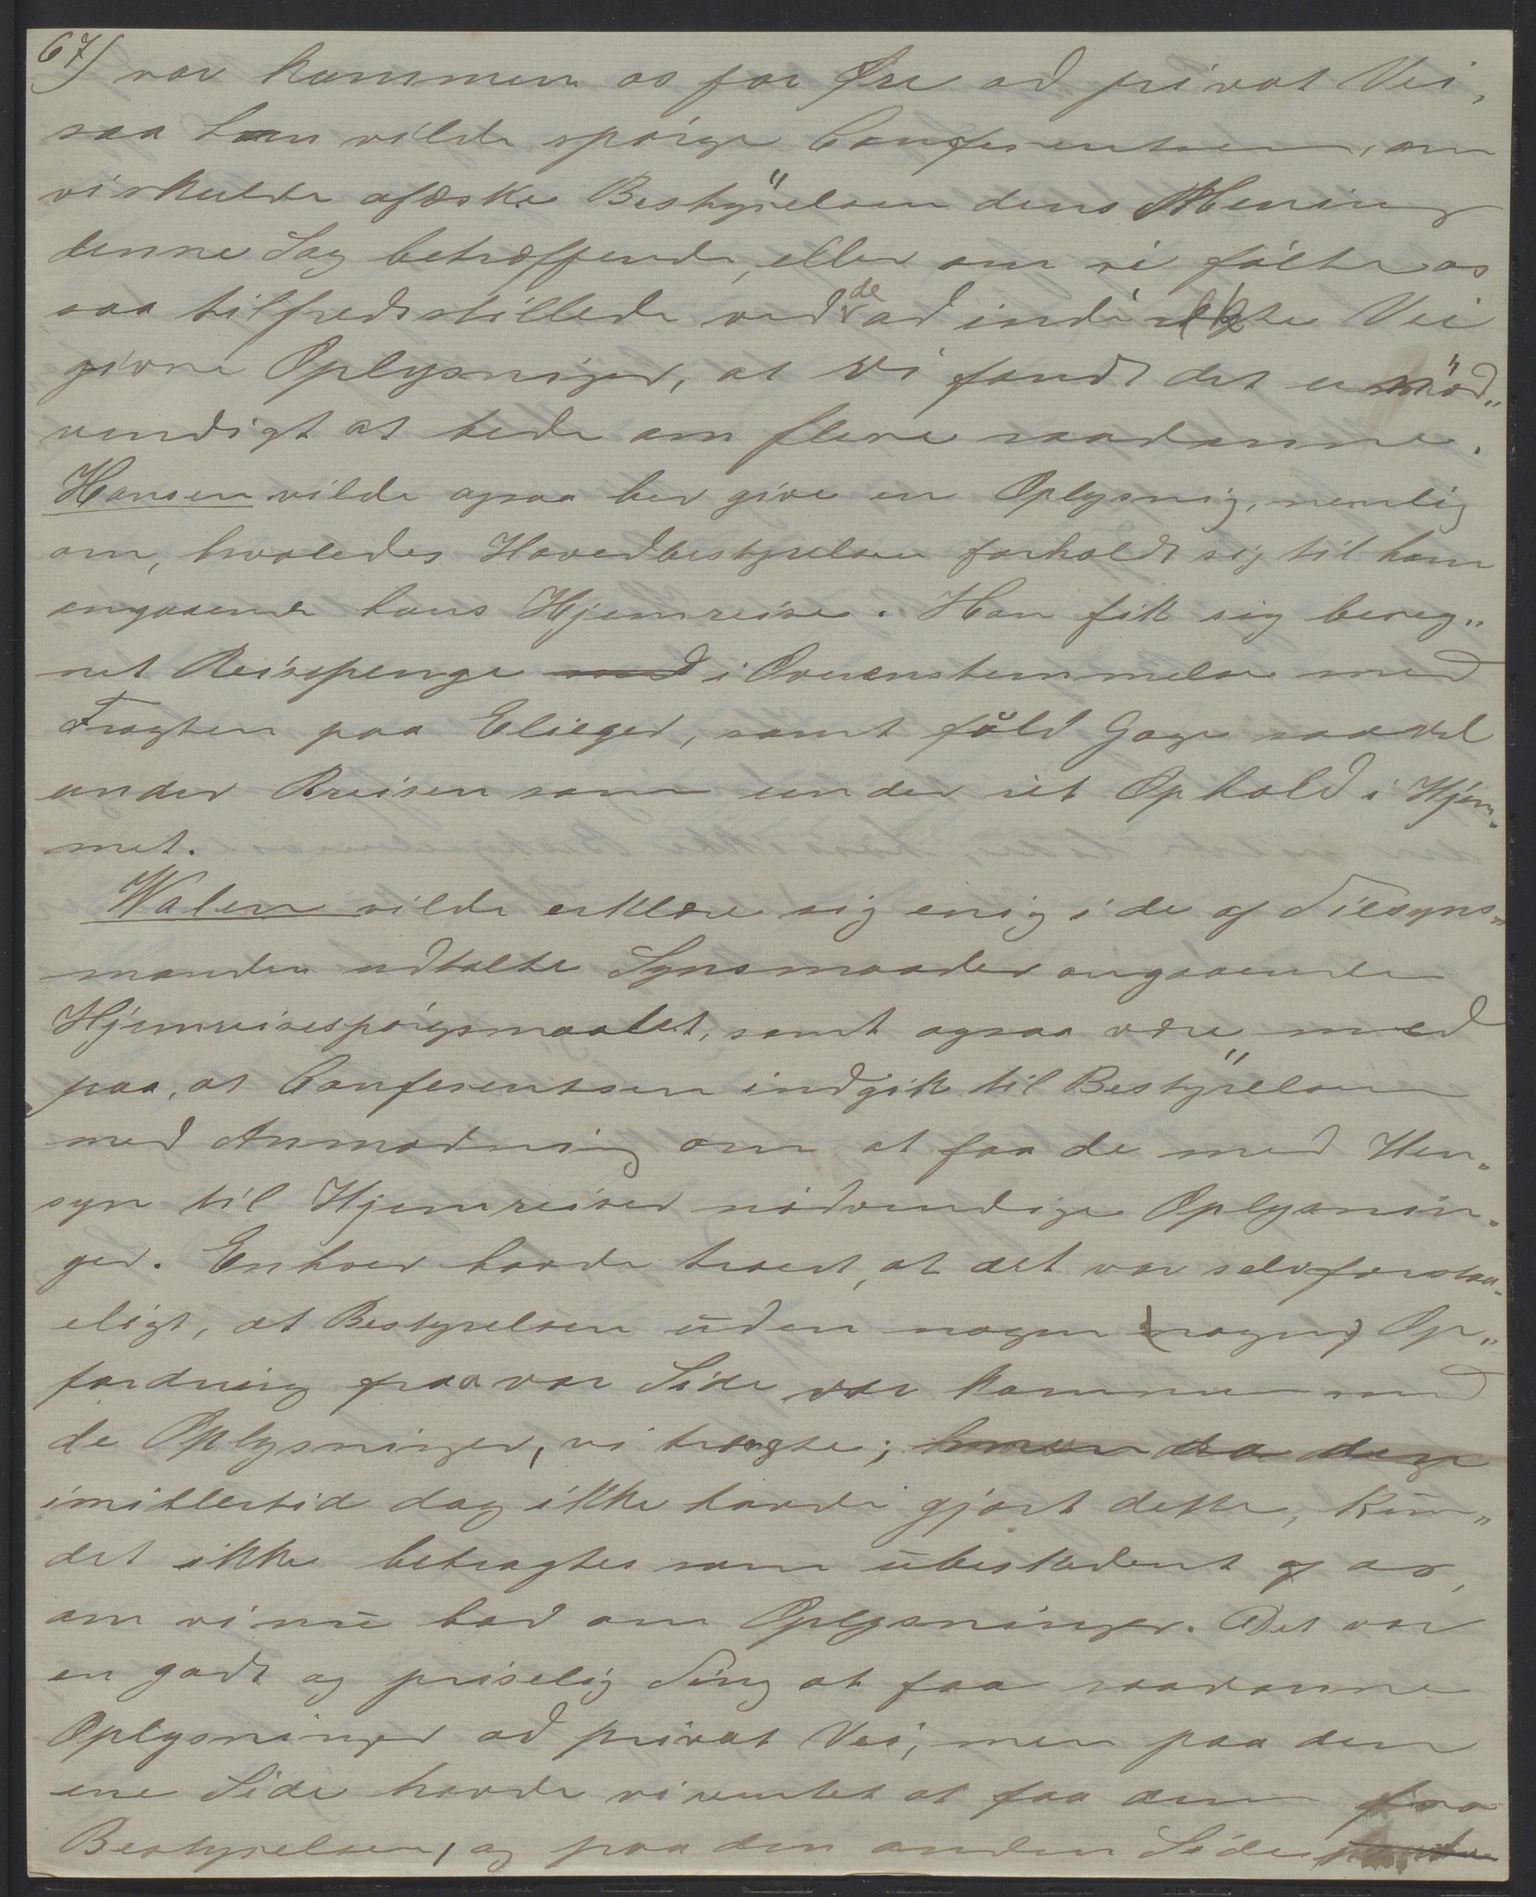 67)
var kommen os for Øre ad privat Vei,
saa han vilde spórge Conferentsen, om
vi skulde afæske Bestÿrelsen dens Mening
denne Sag betræffende, eller om vi fólte os
saa tilfredsstillede ved de ad indirekte Vei
givne Oplysninger, at vi fandt det unöd„
vendigt at bede om flere saadanne.
Hansen vilde ogsaa her give en Oplysnig, nemlig
om, hvoledes Hovedbestyrelsen forholdt sig til ham
angaaende hans Hjemreise. Han fik sig bereg„
net Reisepenge med i Overenstemmelse med
Fragten paa Elieger, samt fuld Gage saavel
under Reisen som under sit Ophold i Hjem„
met.
Walen vilde erklære sig enig i de af Tilsyns„
manden udtalte Synsmaader angaaende
Hjemreisespórgsmaalet, samt ogsaa være med
paa, at Conferentsen indgik til Bestÿrelsen
med Anmodning om at faa de med Hen„
syn til Hjemreiser nódvendige Oplysnin„
ger. Enhver havde troet, at det var selvforstaa„
eligt, at Bestyrelsen uden nogen (nogen) Op„
fordring fra vor Side var kommen med
de Oplysninger, vi trængte; men da den
imidlertid dog ikke havde gjort dette, kun„
det ikke betragtes som ubeskedent af os,
om vi nu bad om Oplysninger. Det var
en godt og priselig Ting at faa saadanne
Oplysninger ad privat Vei, men paa den
ene Side havde vi ventet at faa dem fra
Bestyrelsen, og paa den anden Side